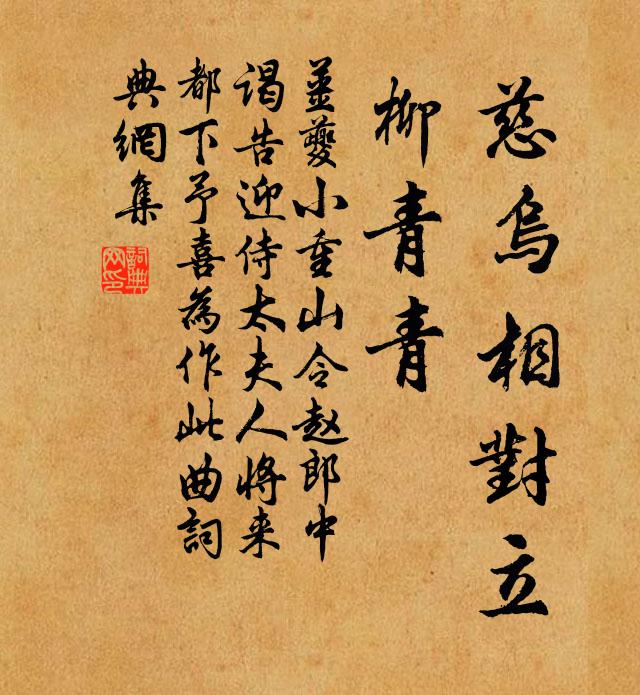 慈烏相對立
柳青青
姜夔小重山令赵郎中
謁告迎侍太夫人將来
都下予喜為作此曲詞
典網集
詞典
网印